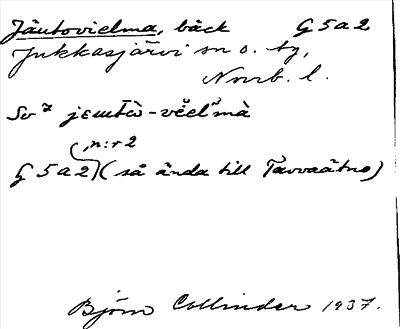 Jäutovielma, bäck G 5 a 2
Jukkasjärvi sn o. tg,
Norrb. l.
So 7 jeɯtὼ-vĕĕlᵊmà
n:r 2
G 5 a 2) (så ända till Tavvaätno)
Björn Collinder 1937.